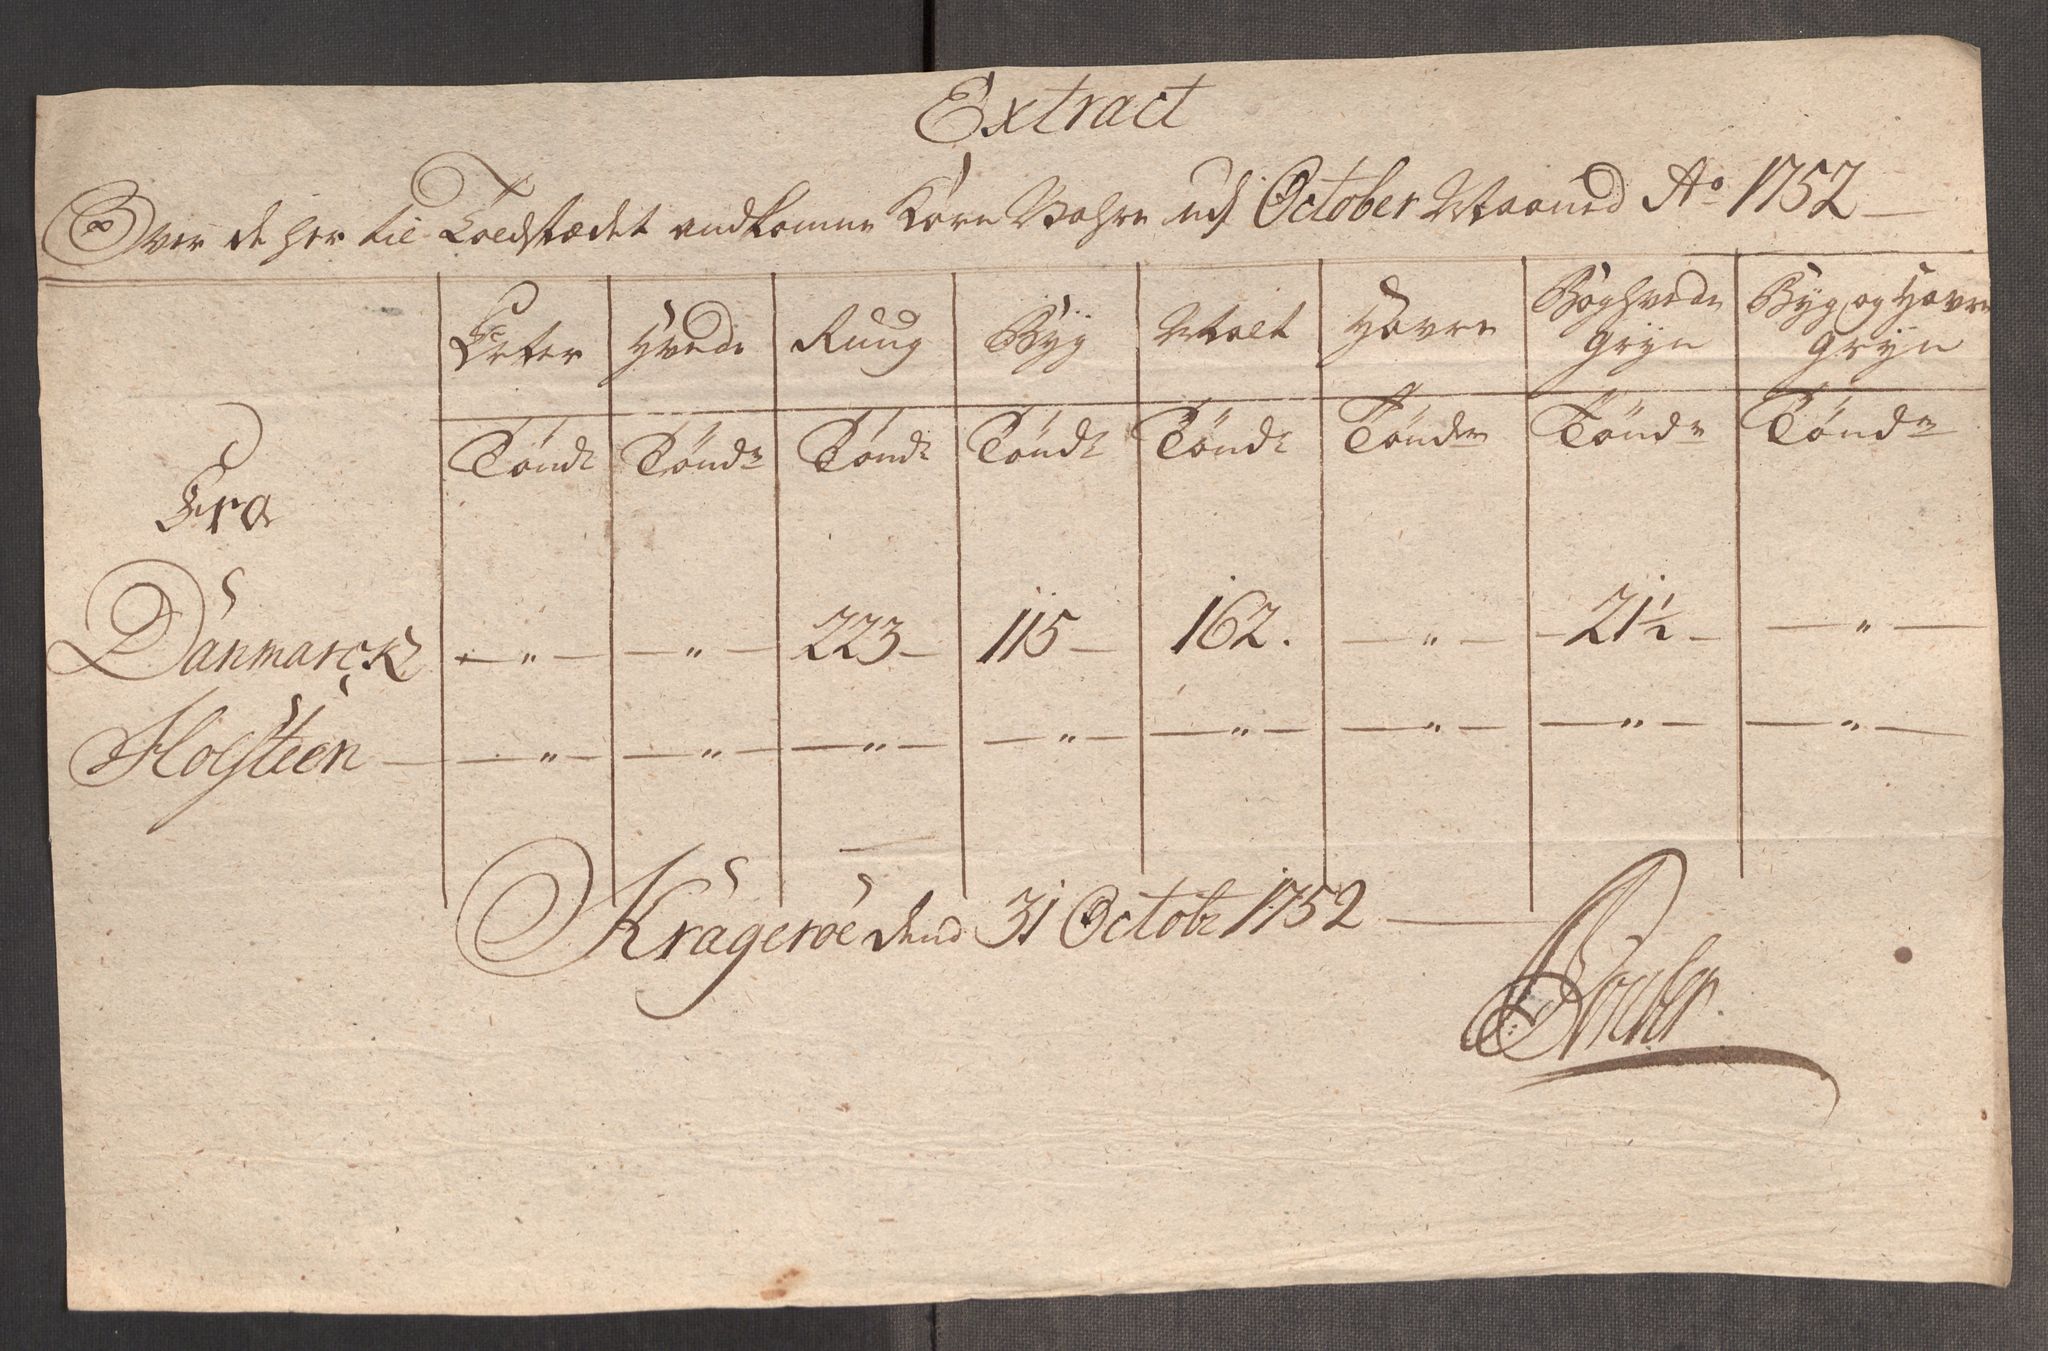 Extract
Over de her til Toldstædet andkomne Korn Vahre udj October Maaned Ao 1752
Erter Hvede Ruug Byg Malt Havre Boghvede Gryn Byg og Havre Gryn
Tøndr Tønde Tøndr Tøndr Tøndr Tønder Tønde Tønde
Fra
Danmarck — " — — " — 223 — 115 — 162. — " — — 21½ — — " —
Holsteen — — " — — " — — " — — " — — " — — " — — " — — " —
Kragerøe dend 31 Octobr 1752